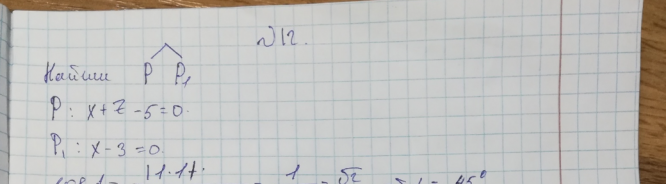 №12.
Найти P P₁
P: x + z - 5 = 0.
P₁: x - 3 = 0
|1·1+ = 1 = √2 = 45°